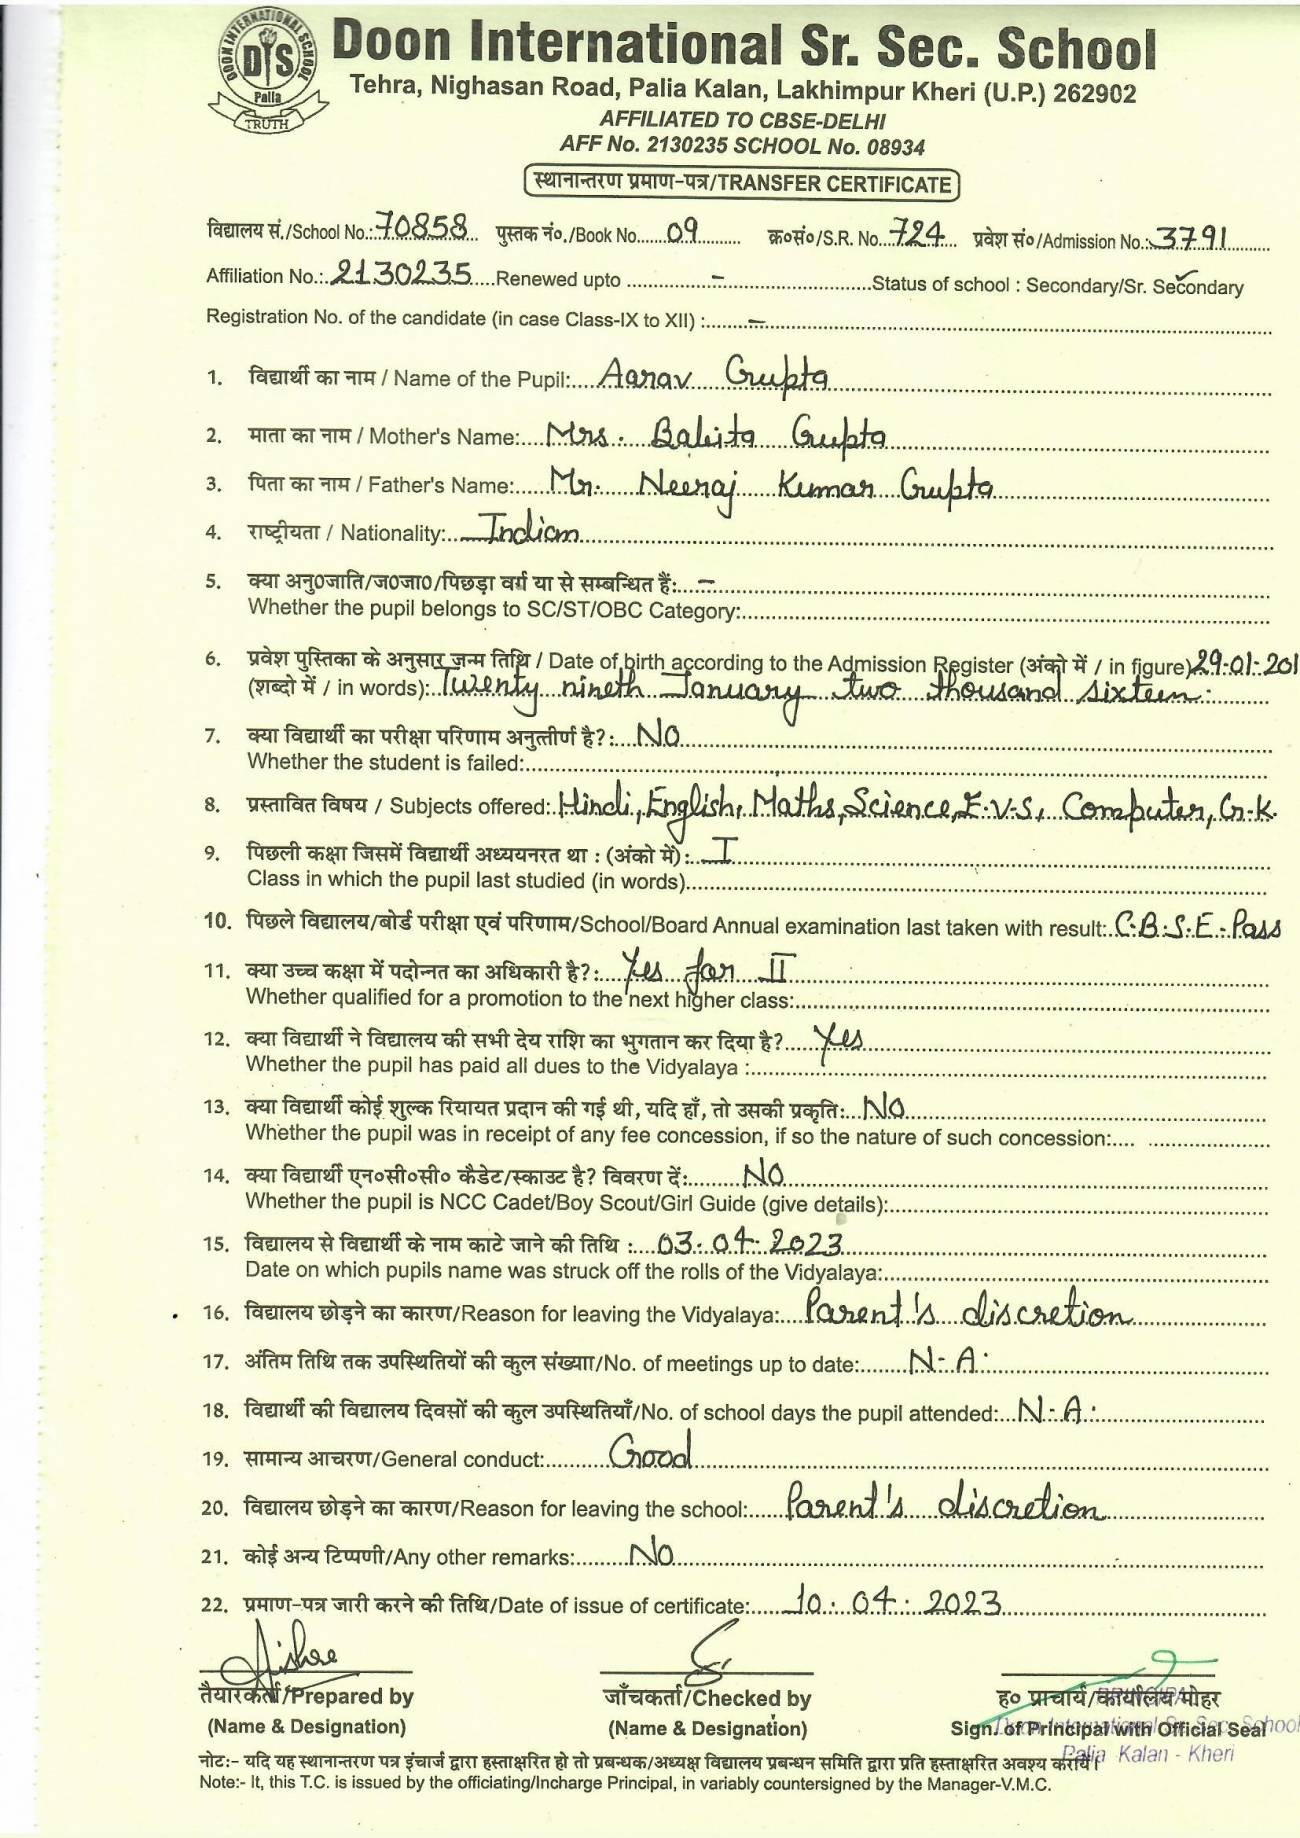 DOON INTERNATIONAL SCHOOL
DIS
Palia
TRUTH
Doon International Sr. Sec. School
Tehra, Nighasan Road, Palia Kalan, Lakhimpur Kheri (U.P.) 262902
AFFILIATED TO CBSE-DELHI
AFF No. 2130235 SCHOOL No. 08934
स्थानान्तरण प्रमाण-पत्र/TRANSFER CERTIFICATE
विद्यालय सं./School No.: 70858 पुस्तक नं०/Book No. 09 क्र०सं०/S.R. No. 724 प्रवेश सं०/Admission No.: 3791
Affiliation No.: 2130235 Renewed upto - Status of school : Secondary/Sr. Secondary
Registration No. of the candidate (in case Class-IX to XII) : -
1. विद्यार्थी का नाम / Name of the Pupil: Aarav Gupta
2. माता का नाम / Mother's Name: Mrs. Babita Gupta
3. पिता का नाम / Father's Name: Mr. Neeraj Kumar Gupta
4. राष्ट्रीयता / Nationality: Indian
5. क्या अनु०जाति/ज०जा०/पिछड़ा वर्ग या से सम्बन्धित हैं: -
Whether the pupil belongs to SC/ST/OBC Category:
6. प्रवेश पुस्तिका के अनुसार जन्म तिथि / Date of birth according to the Admission Register (अंको में / in figure) 29-01-201
(शब्दो में / in words): Twenty nineth January two thousand sixteen.
7. क्या विद्यार्थी का परीक्षा परिणाम अनुत्तीर्ण है?: No
Whether the student is failed:
8. प्रस्तावित विषय / Subjects offered: Hindi, English, Maths, Science, E.V.S, Computer, G.K.
9. पिछली कक्षा जिसमें विद्यार्थी अध्ययनरत था : (अंको में): I
Class in which the pupil last studied (in words)
10. पिछले विद्यालय/बोर्ड परीक्षा एवं परिणाम/School/Board Annual examination last taken with result: C.B.S.E - Pass
11. क्या उच्च कक्षा में पदोन्नत का अधिकारी है?: Yes for II
Whether qualified for a promotion to the next higher class:
12. क्या विद्यार्थी ने विद्यालय की सभी देय राशि का भुगतान कर दिया है? Yes
Whether the pupil has paid all dues to the Vidyalaya :
13. क्या विद्यार्थी कोई शुल्क रियायत प्रदान की गई थी, यदि हाँ, तो उसकी प्रकृति: No
Whether the pupil was in receipt of any fee concession, if so the nature of such concession:
14. क्या विद्यार्थी एन०सी०सी० कैडेट/स्काउट है? विवरण दें: No
Whether the pupil is NCC Cadet/Boy Scout/Girl Guide (give details):
15. विद्यालय से विद्यार्थी के नाम काटे जाने की तिथि : 03.04.2023
Date on which pupils name was struck off the rolls of the Vidyalaya:
16. विद्यालय छोड़ने का कारण/Reason for leaving the Vidyalaya: Parent's discretion
17. अंतिम तिथि तक उपस्थितियों की कुल संख्या/No. of meetings up to date: N.A.
18. विद्यार्थी की विद्यालय दिवसों की कुल उपस्थितियाँ/No. of school days the pupil attended: N.A.
19. सामान्य आचरण/General conduct: Good
20. विद्यालय छोड़ने का कारण/Reason for leaving the school: Parent's discretion
21. कोई अन्य टिप्पणी/Any other remarks: No
22. प्रमाण-पत्र जारी करने की तिथि/Date of issue of certificate: 10.04.2023
तैयारकर्ता/Prepared by जाँचकर्ता/Checked by ह० प्राचार्य/कार्यालय मोहर
PRINCIPAL
(Name & Designation) (Name & Designation) Sign. of Principal with Official Seal
Doon International Sr. Sec. School
Palia Kalan - Kheri
नोट:- यदि यह स्थानान्तरण पत्र इंचार्ज द्वारा हस्ताक्षरित हो तो प्रबन्धक/अध्यक्ष विद्यालय प्रबन्धन समिति द्वारा प्रति हस्ताक्षरित अवश्य करायें।
Note:- It, this T.C. is issued by the officiating/Incharge Principal, in variably countersigned by the Manager-V.M.C.